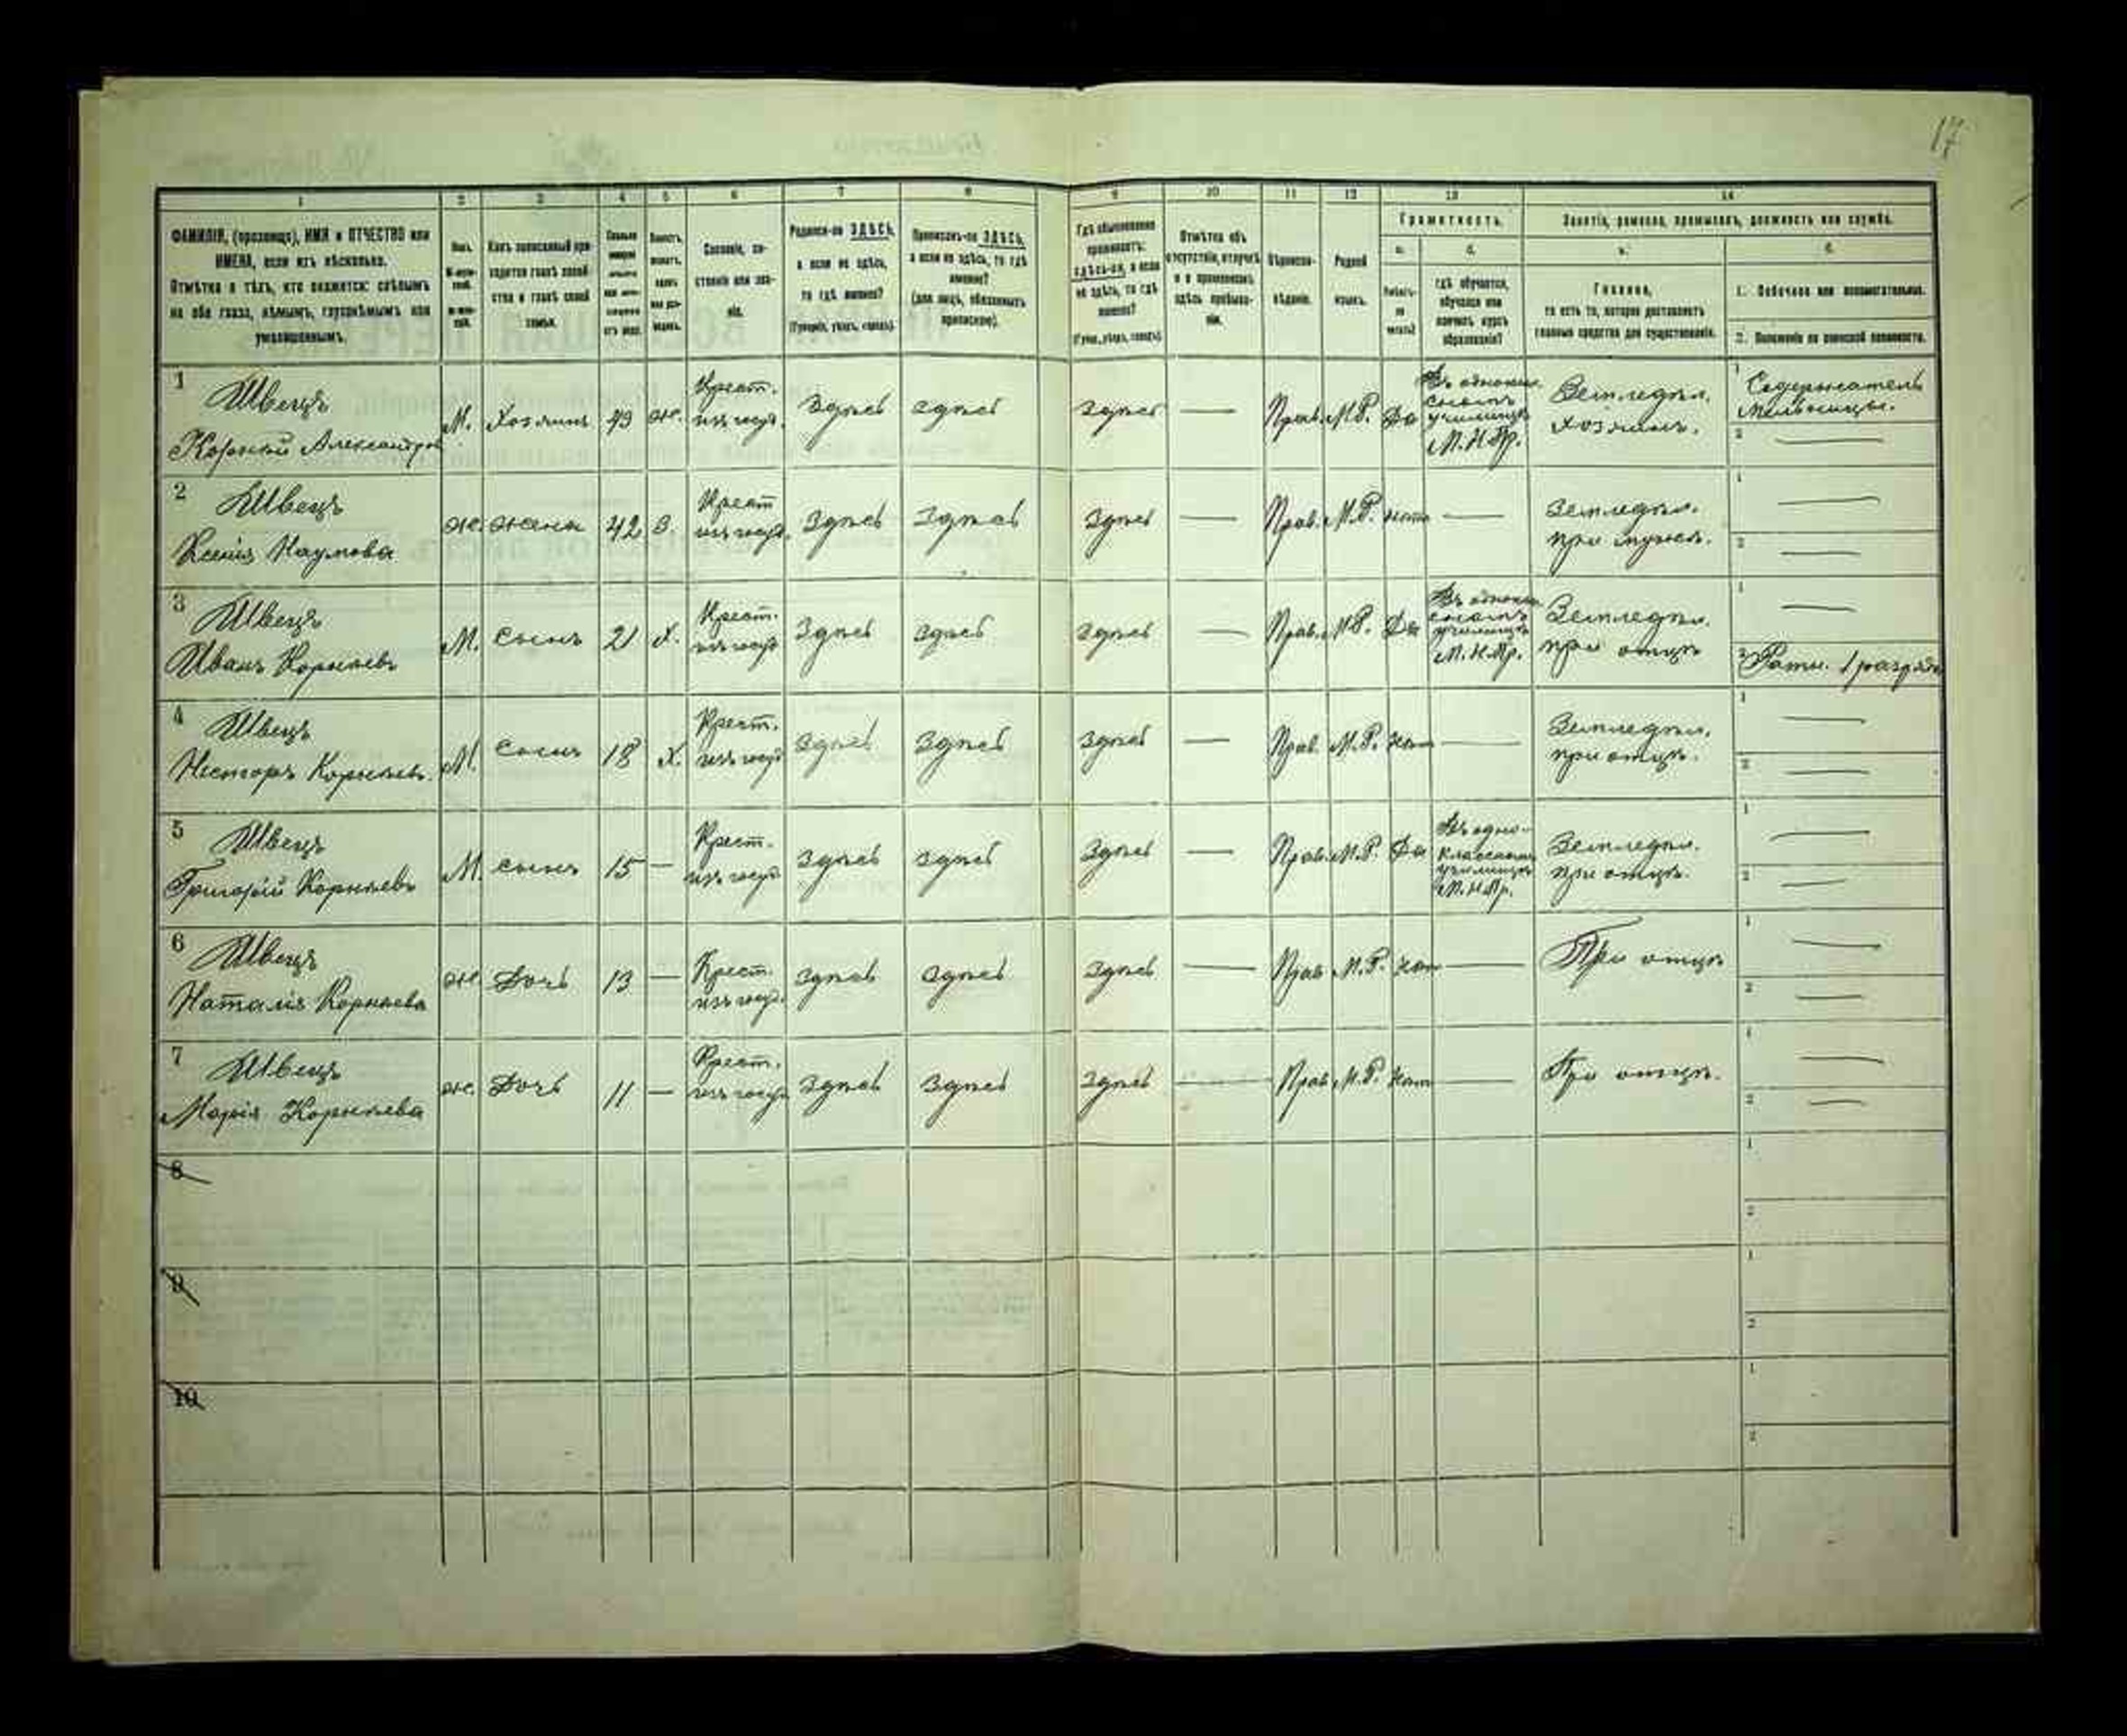 17
1 2 3 4 5 6 7 8 9 10 11 12 13 14
ФАМИЛІЯ, (прозвище), ИМЯ и ОТЧЕСТВО или
ИМЕНА, если ихъ нѣсколько.
Отмѣтка о тѣхъ, кто окажется: слѣпымъ
на оба глаза, нѣмымъ, глухонѣмымъ или
умалишеннымъ.
Полъ.
Какъ записанный при-
ходится главѣ хозяй-
ства и главѣ своей
семьи.
Сословіе, со-
стояніе или зва-
ніе.
Родился-ли ЗДѢСЬ,
а если не здѣсь,
то гдѣ именно?
(Губернія, уѣздъ, городъ).
Приписанъ-ли ЗДѢСЬ,
а если не здѣсь, то гдѣ
именно?
(для лицъ, обязанныхъ
припискою).
Гдѣ обыкновенно
проживаетъ:
здѣсь-ли, а если
не здѣсь, то гдѣ
именно?
(Губ., уѣздъ, городъ).
Отмѣтка объ
отсутствіи, отлучкѣ
и о временномъ
здѣсь пребыва-
ніи.
Вѣроиспо-
вѣданіе.
Родной
языкъ.
Грамотность.
а.
Умѣетъ-
ли
читать?
б.
гдѣ обучается,
обучался или
кончилъ курсъ
образованія?
Занятіе, ремесло, промыселъ, должность или служба.
а.
Главное,
то есть то, которое доставляетъ
главныя средства для существованія.
б.
1. Побочное или вспомогательное.
2. Положеніе по воинской повинности.
1 Швецъ
Корнѣй Александров
М. Хозяинъ 49 ж. Крест. изъ госуд. Здѣсь здѣсь здѣсь — Прав. М.Р. Да
училищѣ
М.Н.Пр.
Земледѣл.
хозяинъ.
1 Содержатель
мельницы.
2 —
2 Швецъ
Ксенія Наумова
ж. жена 42 з. Крест изъ госуд. Здѣсь Здѣсь Здѣсь — Прав. М.Р. нѣтъ —
Земледѣл.
при мужѣ.
1 —
2 —
3 Швецъ
Иванъ Корнѣевъ
М. Сынъ 21 Х. Крест. изъ госуд Здѣсь здѣсь здѣсь — Прав. М.Р. Да
училищѣ
М.Н.Пр.
Земледѣл.
при отцѣ
1 —
2 Ратн. 1 разряда
4 Швецъ
Несторъ Корнѣевъ.
М. Сынъ 18 Х. Крест. изъ госуд Здѣсь Здѣсь здѣсь — Прав. М.Р. Нѣт —
Земледѣл.
при отцѣ.
1 —
2 —
5 Швецъ
Григорій Корнѣевъ
М. сынъ 15 — Крест. изъ госуд Здѣсь здѣсь Здѣсь — Прав. М.Р. Да
Въ одно-
классном
училищѣ
М.Н.Пр.
Земледѣл.
при отцѣ.
1 —
2 —
6 Швецъ
Наталія Корнѣева
ж. Дочь 13 — Крест. изъ госуд. Здѣсь здѣсь здѣсь — Прав М.Р. Нѣт —
При отцѣ
1 —
2 —
7 Швецъ
Марія Корнѣева
ж. Дочь 11 — Крест. изъ госуд Здѣсь Здѣсь Здѣсь — Прав М.Р. Нѣт —
При отцѣ.
1 —
2 —
8
1
2
9
1
2
10
1
2